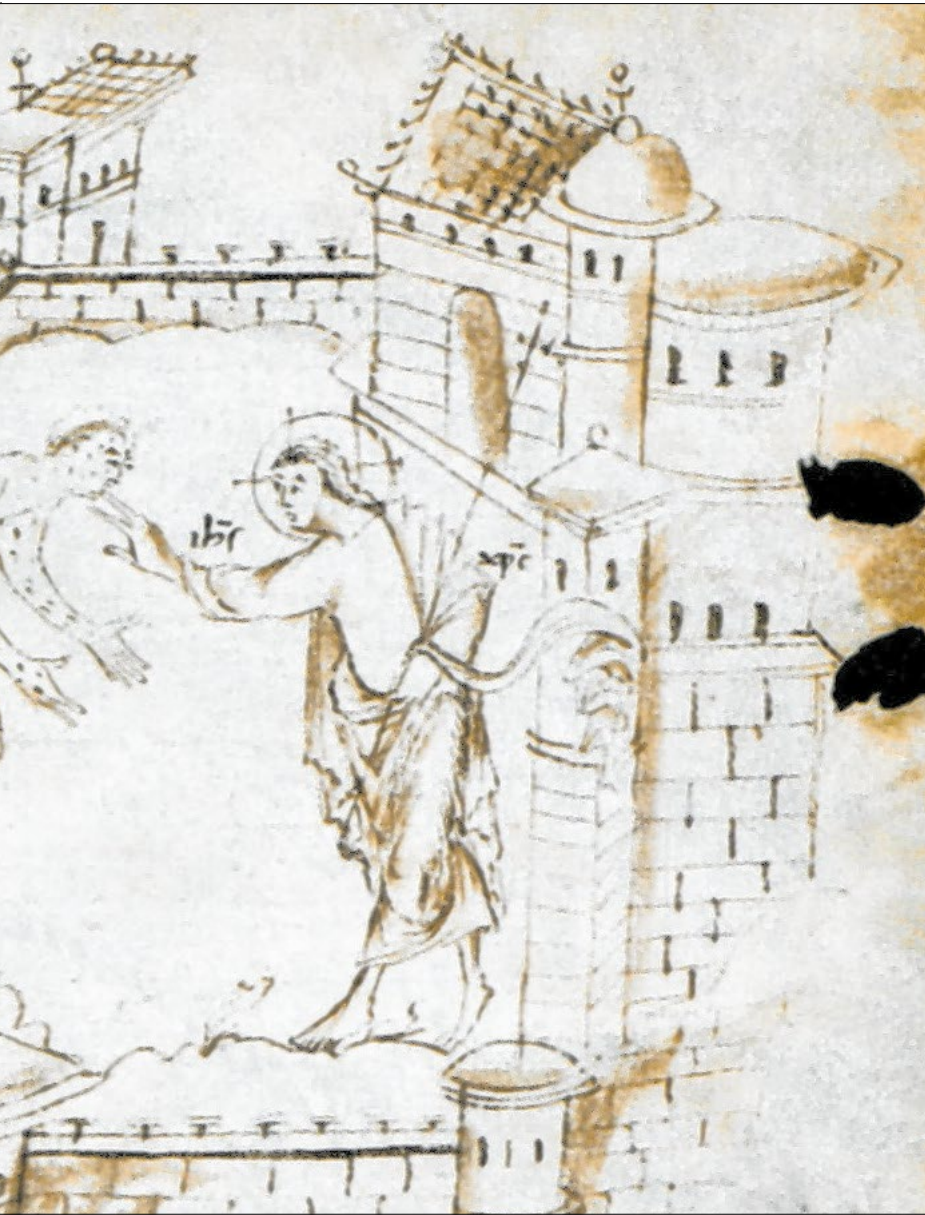 ihc̄
xpc̄